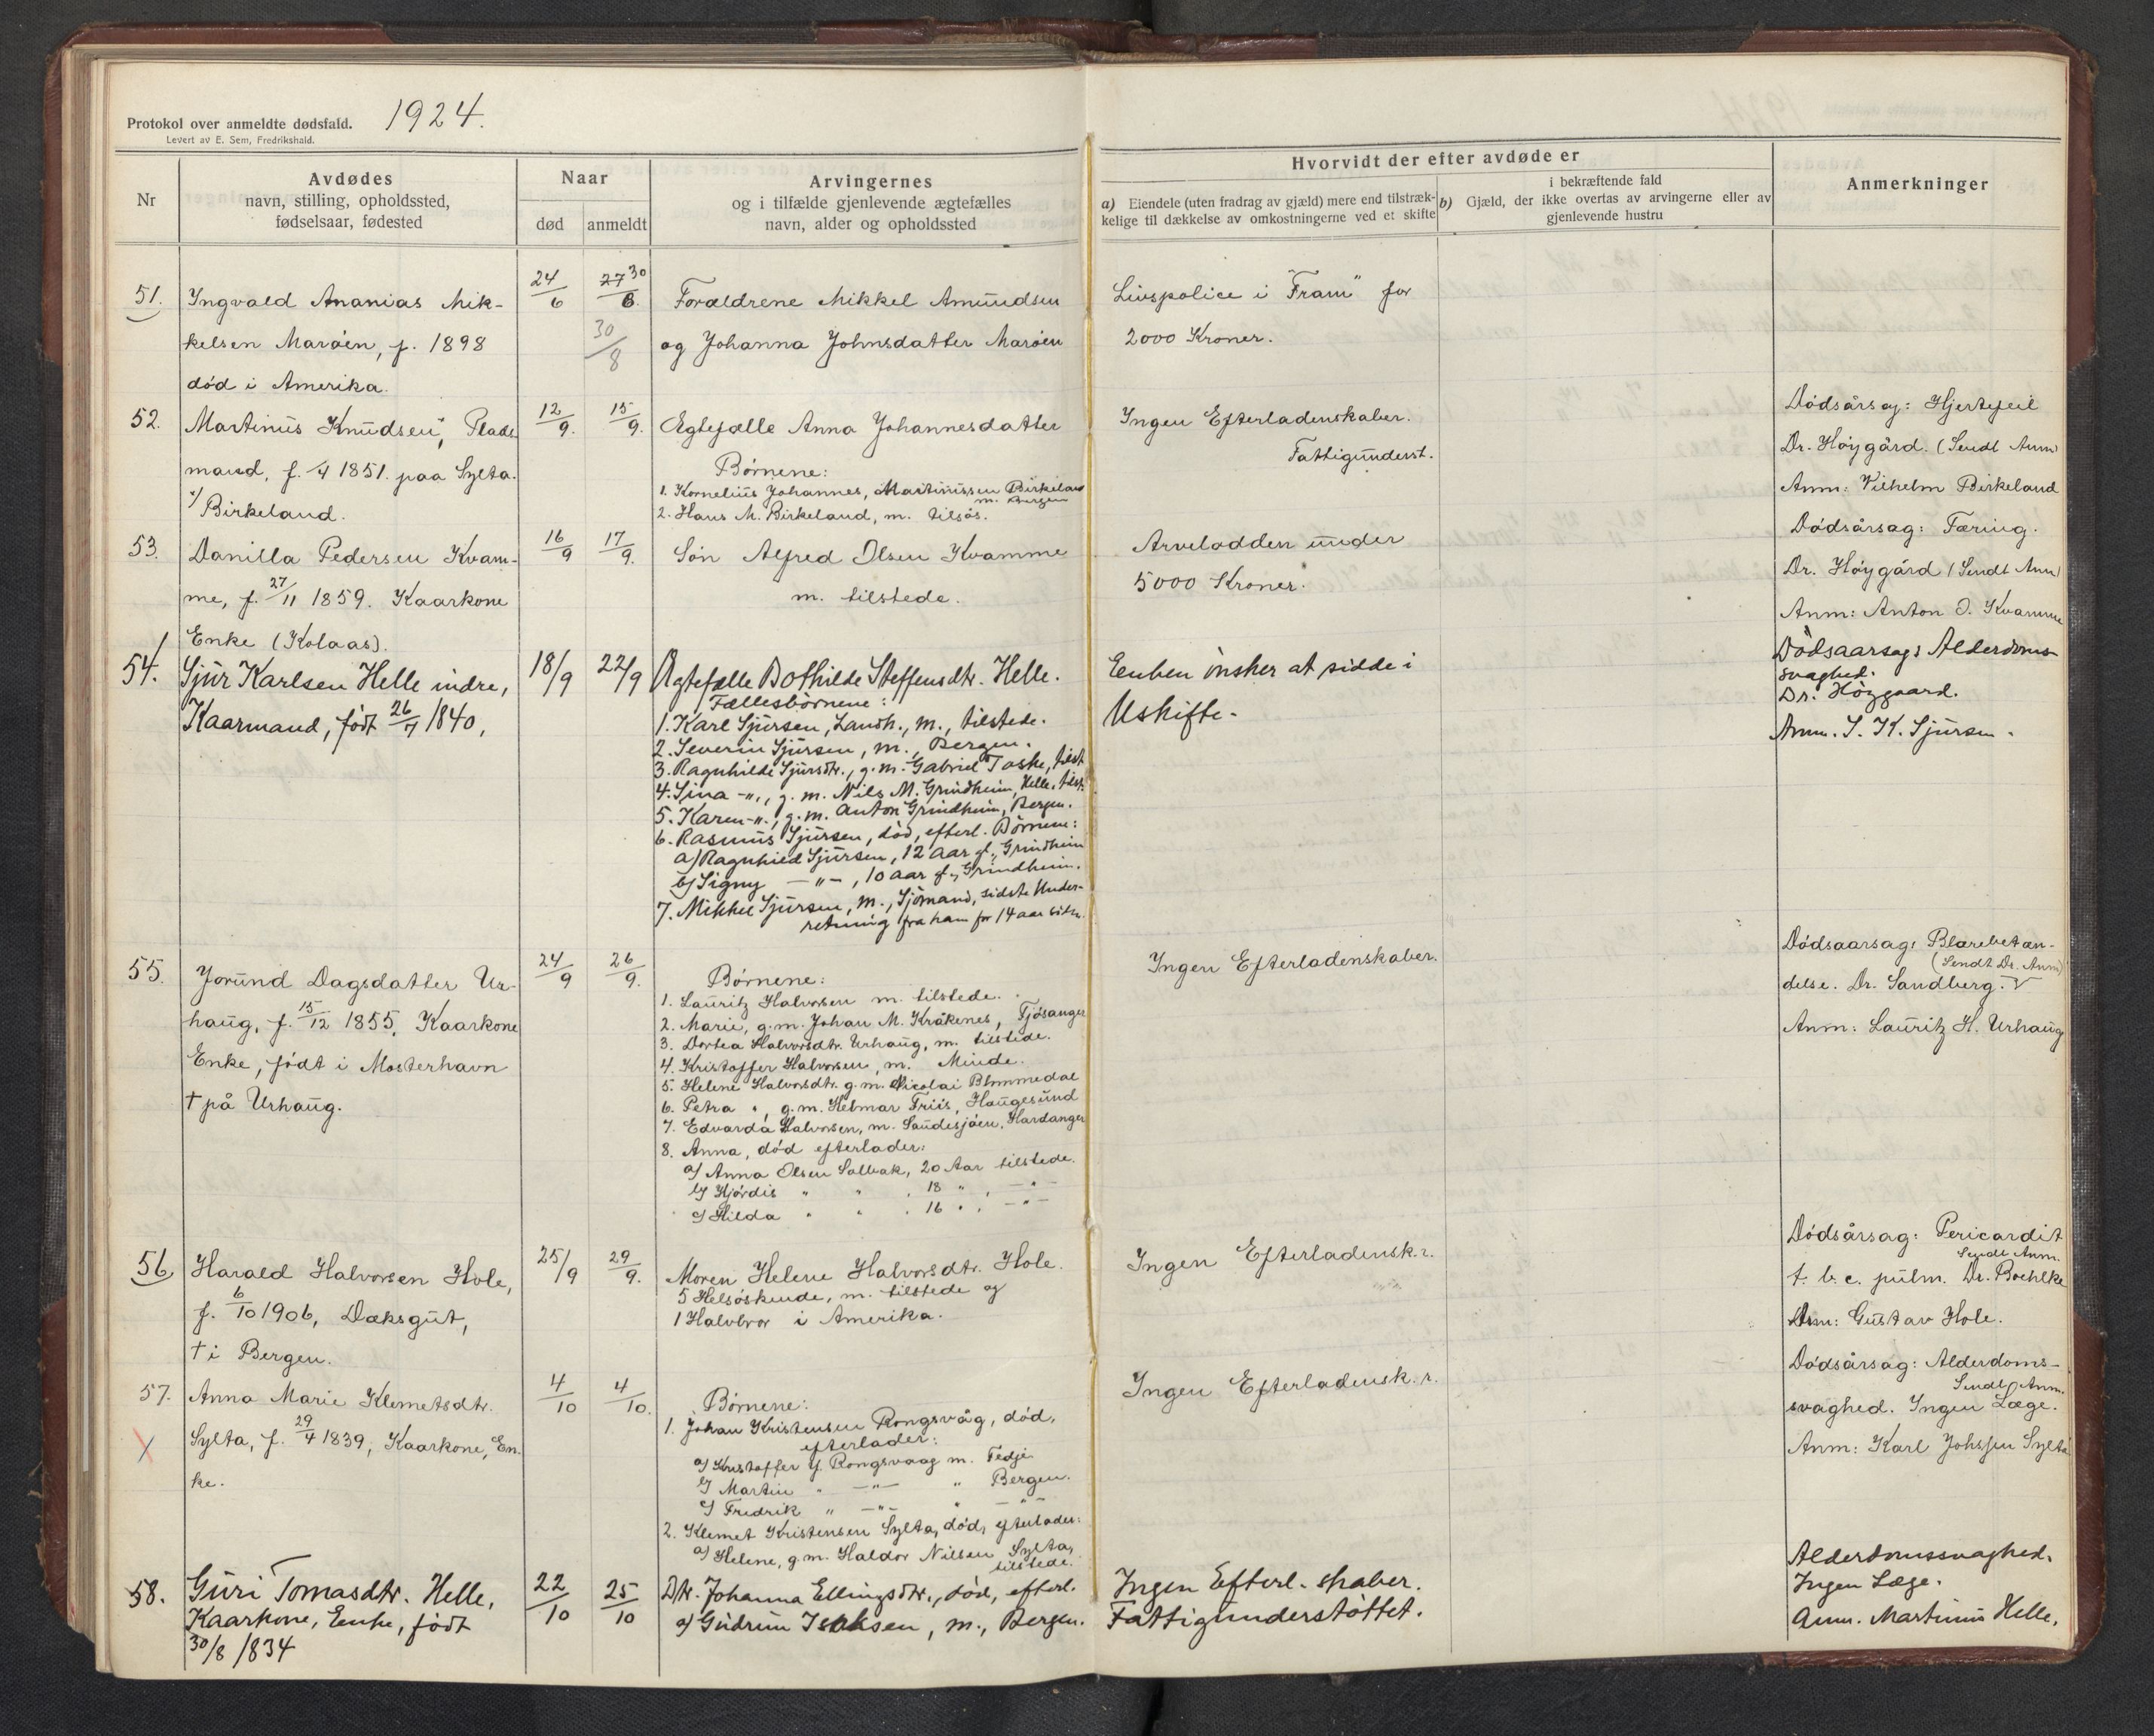 Protokol over anmeldte dødsfald. 1924.
Levert av E. Sem, Fredrikshald.
Nr
Avdødes
navn, stilling, opholdssted,
fødselsaar, fødested
Naar
død
anmeldt
Arvingernes
og i tilfælde gjenlevende ægtefælles
navn, alder og opholdssted
Hvorvidt der efter avdøde er
a) Eiendele (uten fradrag av gjæld) mere end tilstræk-
kelige til dækkelse av omkostningerne ved et skifte
i bekræftende fald
b) Gjæld, der ikke overtas av arvingerne eller av
gjenlevende hustru
Anmerkninger
51.
Ingvald Ananias Mik-
kelsen Marøen, f. 1898
død i Amerika.
24/6
27 30
6.
30/8
Forældrene Mikkel Amundsen
og Johanna Johnsdatter Marøen
Livspolice i "Fram" for
2000 Kroner.
52.
Martinus Knudsen, Plads
mand, f. 1851. paa Sylta.
Birkeland.
12/9.
15/9.
Ægtefælle Anna Johannesdatter
Børnene:
1. Kornelius Johannes, Martinussen Birkeland
m. Bergen
2. Hans M. Birkeland, m. tilsøs.
Ingen Efterladenskaber.
Fattigunderst.
Dødsårsag: Hjertefeil
Dr. Høygård. (Sendt Anm)
Anm: Vilhelm Birkeland
53.
Danilla Pedersen Kvam-
me, f. 27/11 1859. Kaarkone
Enke (Kolaas).
16/9
17/9.
Søn Alfred Olsen Kvamme
m. tilstede.
Arvelodden under
5000 Kroner.
Dødsårsag: Tæring.
Dr. Høygård (Sendt Anm)
Anm: Anton O. Kvamme
54.
Sjur Karlsen Helle indre,
Kaarmand, født 26/7 1840,
18/9
22/9
Ægtefælle Bothilde Steffensdtr. Helle.
Fællesbørnene:
1. Karl Sjursen, Landh., m., tilstede.
2. Severin Sjursen, m., Bergen.
3. Ragnhilde Sjursdtr., g.m. Gabriel Toske, tilst
4. Sina -"-, g. m. Nils M. Grindheim, Helle, tilst.
5. Karen -"-, g.m. Anton Grindheim, Bergen.
6. Rasmus Sjursen, død, efterl. Børnene:
a) Ragnhild Sjursen, 12 aar gl., Grindheim
b) Signy -"-, 10 aar g., Grindheim.
7. Mikkel Sjursen, m., Sjømand, sidste Under-
retning fra ham for 14 aar siden.
Enken ønsker at sidde i
Uskifte.
Dødsaarsag: Alderdoms-
svaghed.
Dr. Høygaard.
Anm. S. K. Sjursen.
55.
Jorund Dagsdatter Ur-
haug, f. 15/12 1855, Kaarkone
Enke, født i Mosterhavn
† på Urhaug.
24/9
26/9.
Børnene:
1. Lauritz Halvorsen m. tilstede.
2. Marie, g.m. Johan M. Kråkenes, Fjøsanger
3. Dortea Halvorsdtr. Urhaug, m. tilstede.
4. Kristoffer Halvorsen, m. Minde.
5. Helene Halvorsdtr. g.m. Nicolai Blommedal
6. Petra ", g.m. Helmar Friis, Haugesund
7. Edvarda Halvorsen, m. Saudesjøen, Hardanger
8. Anna, død efterlader:
a) Anna Olsen Solbak, 20 Aar tilstede.
b) Hjørdis " " , 18 " , -"-
c) Hilda " " , 16 " , -"-
Ingen Efterladenskaber.
Dødsaarsag: Blærebetæn-
(Sendt Dr. Anm)
delse. Dr. Sandberg. V
Anm: Lauritz H. Urhaug
56
Harald Halvorsen Hole,
f. 6/10 1906, Dæksgut,
† i Bergen.
25/9
29/9.
Moren Helene Halvorsdtr. Hole.
5 Helsøskende, m. tilstede og
1 Halvbror i Amerika.
Ingen Efterladensk.r.
Dødsårsag: Pericardit
Sendt Anm.
t. b. c. pulm. Dr. Boehlke
Anm: Gustav Hole.
57.
X
Anna Marie Klemetsdtr.
Sylta, f. 29/4 1839, Kaarkone, En-
ke.
4/10
4/10.
Børnene:
1. Johan Kristensen Rongsvåg, død,
efterlader:
a) Kristoffer J. Rongsvaag m. Fedje
b) Martin " -"- " Bergen.
c) Fredrik " -"- " -"-
2. Klemet Kristensen Sylta, død, efterlader:
a) Helene, g.m. Haldor Nilsen Sylta,
tilstede.
Ingen Efterladensk.r.
Dødsårsag: Alderdoms-
Sendt Anm.
svaghed. Ingen Læge.
Anm: Karl Johssen Sylta
58.
Guri Tomasdtr. Helle,
Kaarkone, Enke, født
30/8 1834
22/10
25/10
Dtr. Johanna Ellingsdtr., død, efterl.
a) Gudrun Isaksen, m., Bergen.
Ingen Efterl.skaber.
Fattigunderstøttet.
Alderdomssvaghed.
Ingen Læge.
Anm. Martinus Helle.